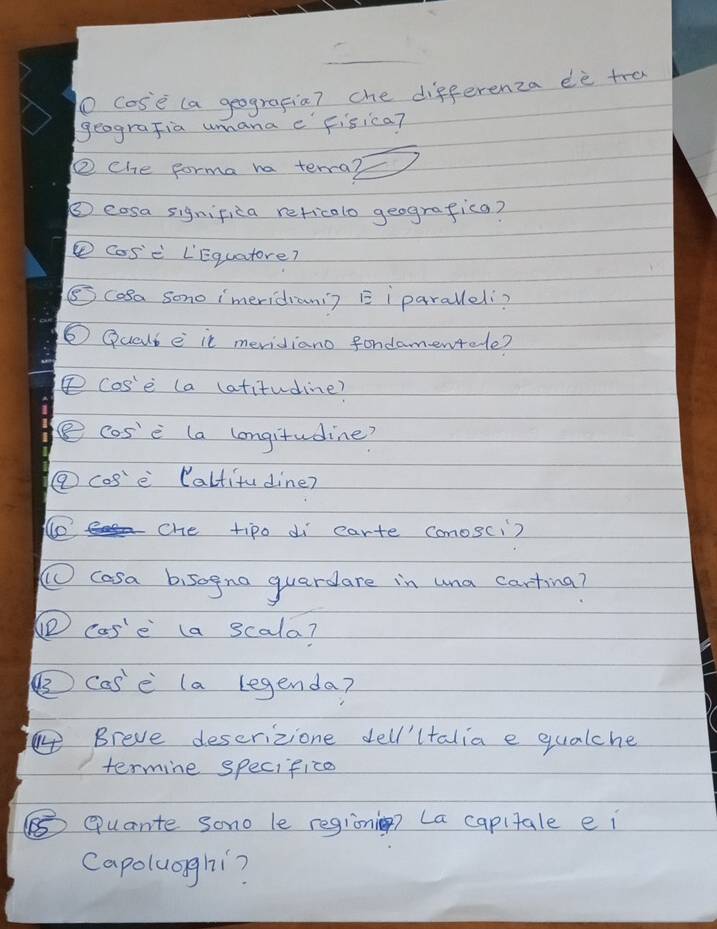 ① Cos'è la geografia? Che differenza c'è tra
geografia umana e fisica?
② Che forma ha terra?
③ cosa significa reticolo geografico?
④ Cos'è L'Equatore?
⑤ Cosa sono i meridiani? E i paralleli?
⑥ Qual è il meridiano fondamentale?
⑦ Cos'è la latitudine?
⑧ cos'è la longitudine?
⑨ cos'è l'altitudine?
⑩ Che tipo di carte conosci?
⑪ cosa bisogna guardare in una cartina?
⑫ cos'è la scala?
⑬ cos'è la legenda?
⑭ Breve descrizione dell'Italia e qualche
termine specifico
⑮ Quante sono le regioni? La capitale e i
Capoluoghi?